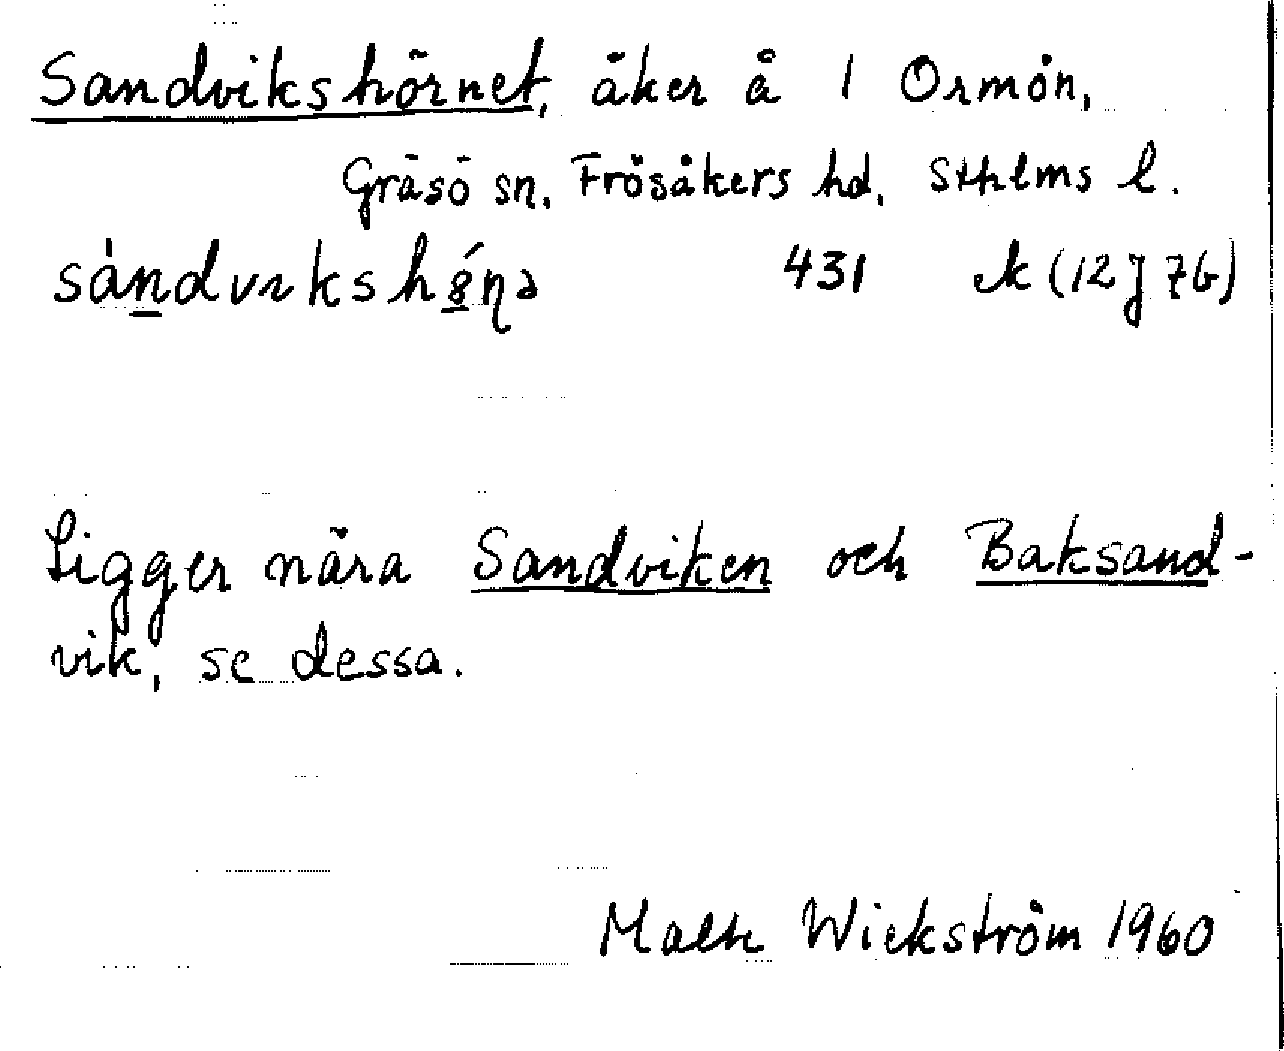 Sandvikshörnet, åker å 1 Ormön,
Gräsö sn, Frösåkers hd, Sthlms l.
431 ek (12J 7b)
Ligger nära Sandviken och Baksand-
vik, se dessa.
Malte Wickström 1960